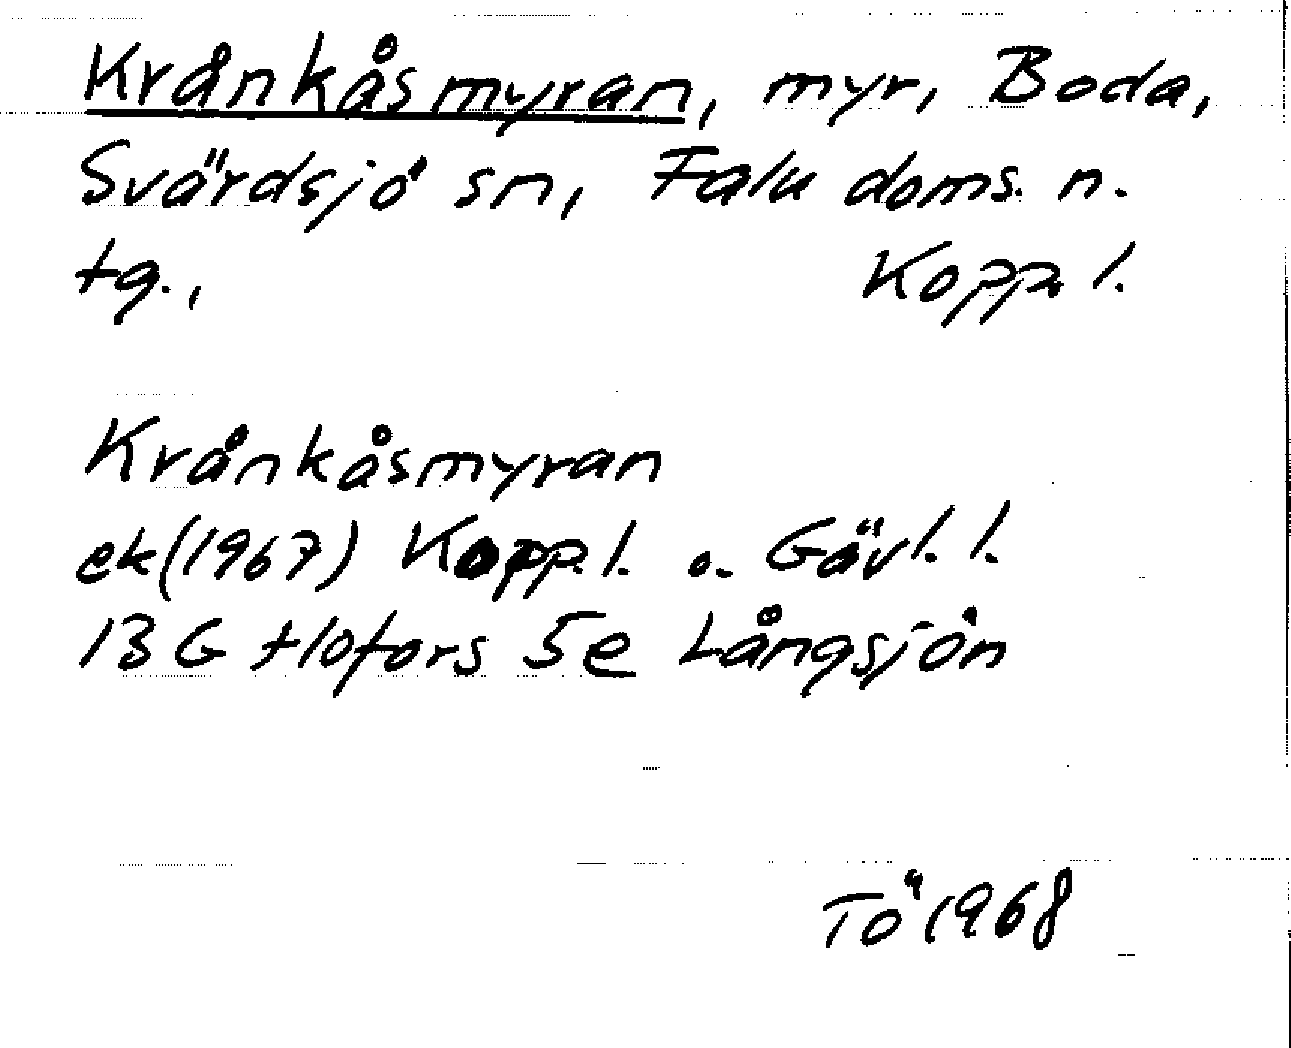 Krånkåsmyran, myr, Boda,
Svärdsjö sn, Falu doms. n.
tg., Kopp. l.
Krånkåsmyran
ek (1967) Kopp. l. o. Gävl. l.
13 G Hofors 5e Långsjön
Tö 1968